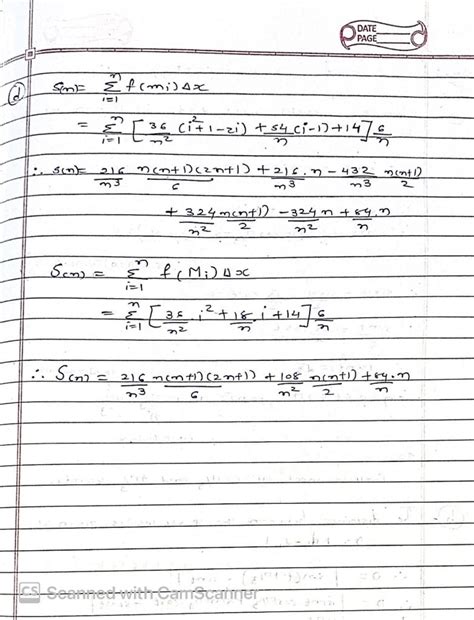 DATE
PAGE
(d) s(n) = Σ_{i=1}^{n} f(mi) Δx
= Σ_{i=1}^{n} [36/n² (i²+1-2i) + 54/n (i-1) + 14] 6/n
∴ s(n) = 216/n³ n(n+1)(2n+1)/6 + 216/n³ . n - 432/n³ n(n+1)/2
+ 324/n² n(n+1)/2 - 324/n² n + 84/n . n
S(n) = Σ_{i=1}^{n} f(Mi) Δx
= Σ_{i=1}^{n} [36/n² . i² + 18/n . i + 14] 6/n
∴ S(n) = 216/n³ n(n+1)(2n+1)/6 + 108/n² n(n+1)/2 + 84/n . n
CS Scanned with CamScanner